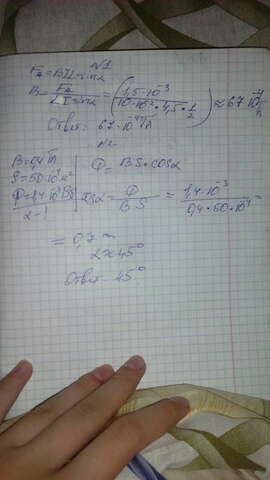 N1
Fa = BIL sinα
B = Fa / LI sinα = (1,5·10⁻³ / 10·10⁻²·4,5·1/2) ≈ 67·10⁻⁴ Тл
Ответ: 67·10⁻⁴ Тл
N2
B=0,4 Тл
Φ = BS·cosα
S=50·10⁻⁴ м²
Φ=1,4·10⁻³ Вб
cosα = Φ / BS = 1,4·10⁻³ / 0,4·50·10⁻⁴ =
α-?
= 0,7
α≈45°
Ответ 45°